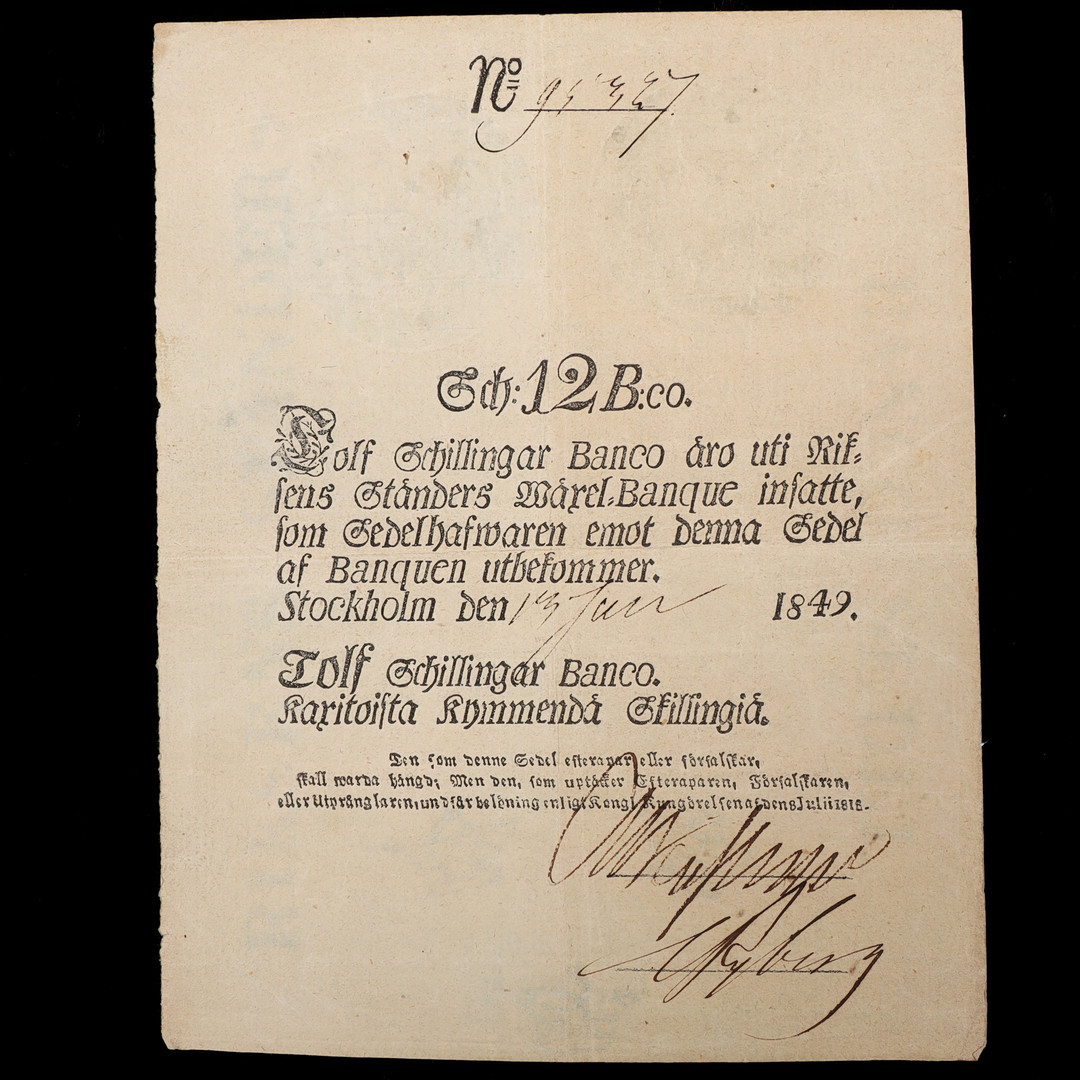 No 95327.
Sch: 12 B:co.
Tolf Schillingar Banco äro uti Rik-
sens Ständers Wäxel-Banque insatte,
som Sedelhafwaren emot denna Sedel
af Banquen utbekommer.
Stockholm den 13 Jan 1849.
Tolf Schillingar Banco.
Kaxitoista Kymmendä Skillingiä.
Den som denne Sedel efterapar eller förfalskar,
skall warda hängd; Men den, som uptäcker Efteraparen, Förfalskaren,
eller Utprånglaren, undfår belöning enligt Kongl. Kungörelsen af den 8 Julii 1818.